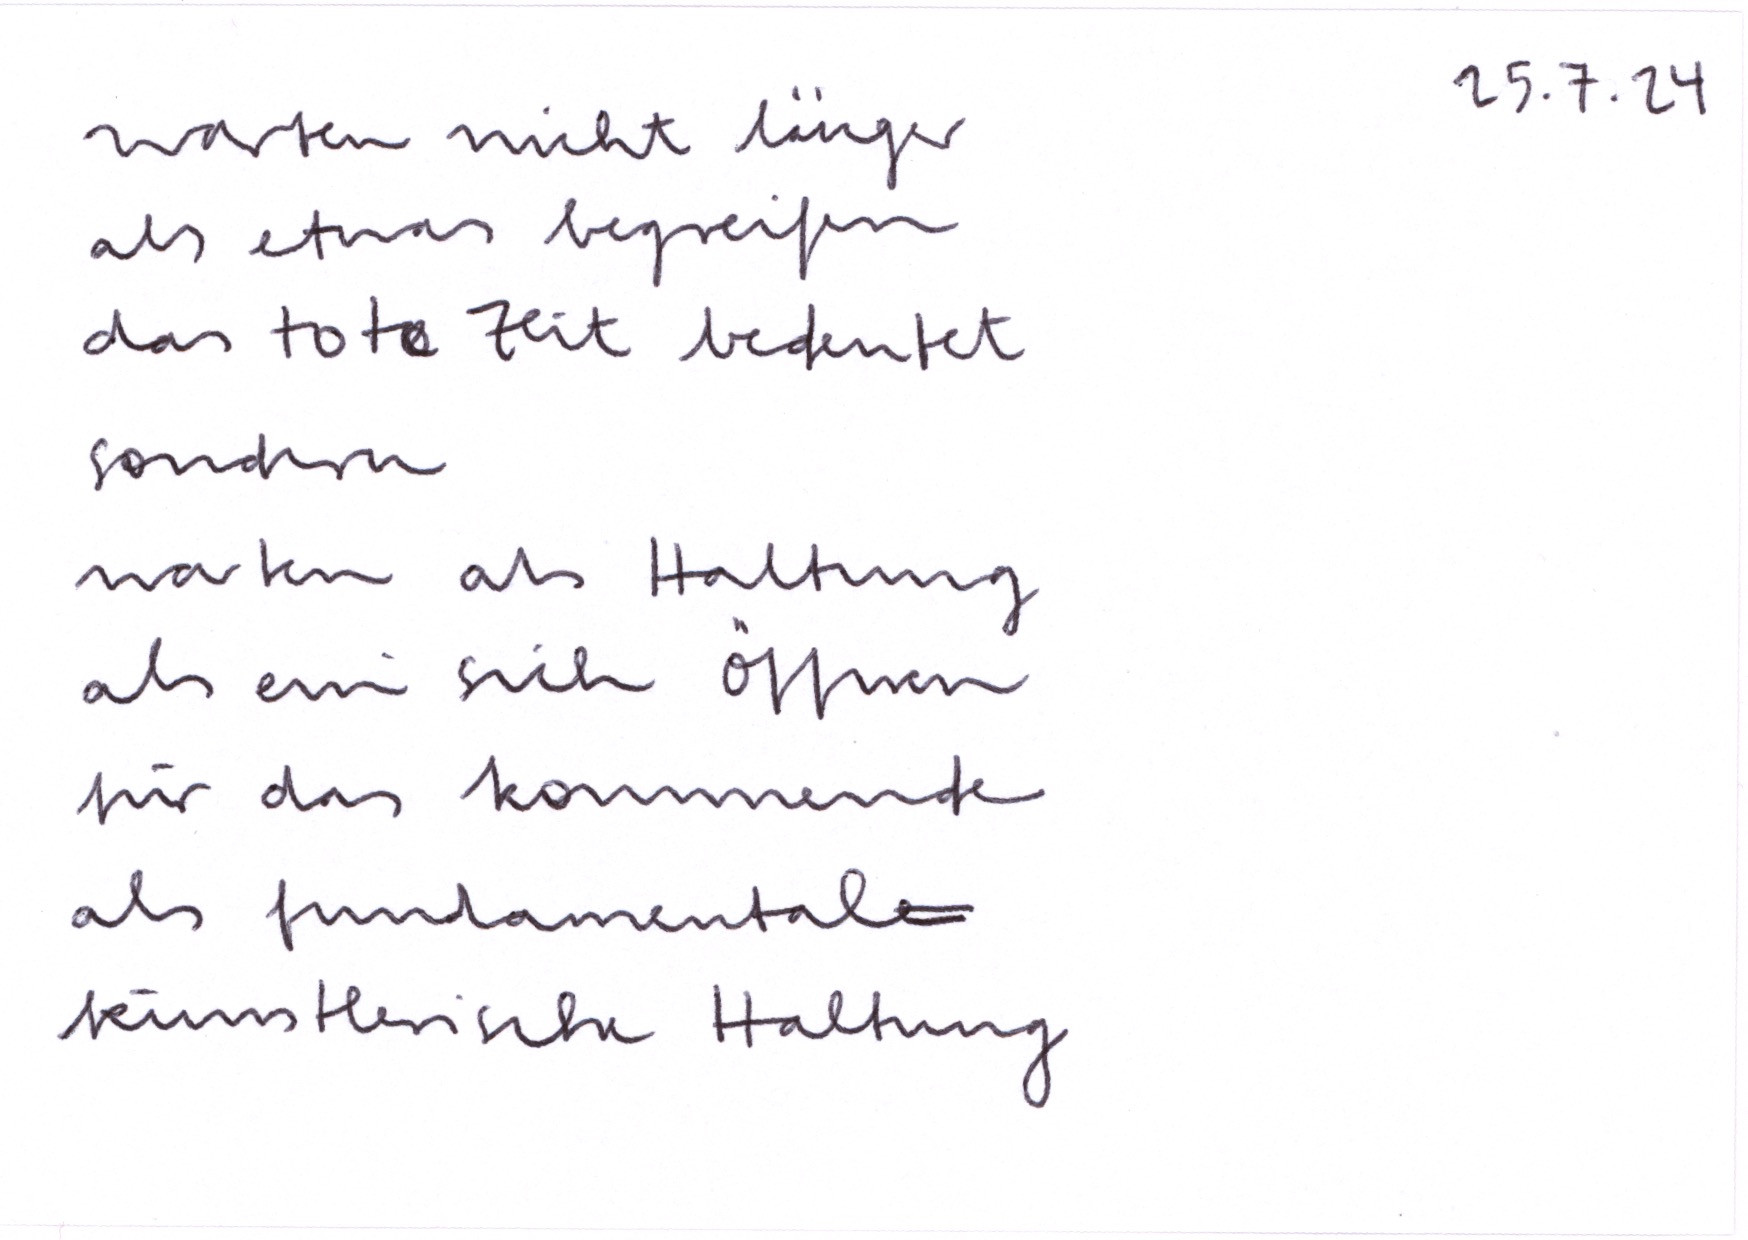 25.7.24
warten nicht länger
als etwas begreifen
das tote Zeit bedeutet
sondern
warten als Haltung
als ein sich Öffnen
für das kommende
als fundamentale
künstlerische Haltung